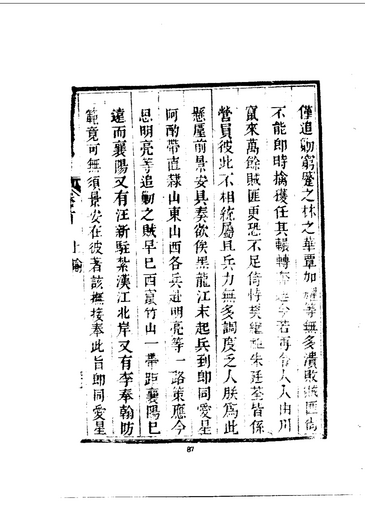 僅追勦窮蹙之林之華覃加耀等無多潰敗賊匪尚
不能卽時擒獲任其輾轉今若再令人由川
竄來萬餘賊匪更恐不足倚恃樊繼祖朱廷荃皆係
營員彼此不相統屬且兵力無多調度乏人朕爲此
懸廑前景安具奏欲俟黑龍江未起兵到卽同愛星
阿酌帶直隸山東山西各兵赴明亮等一路策應今
思明亮等追勦之賊早已西竄竹山一帶距襄陽已
遠而襄陽又有汪新駐紮漢江北岸又有李奉翰防
範竟可無須景安在彼著該撫接奉此旨卽同愛星
卷首
上諭
87